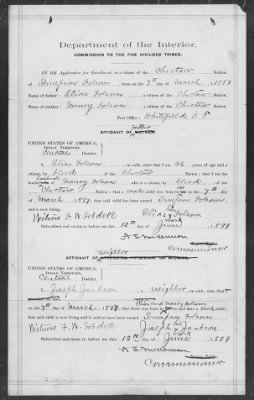 Department of the Interior,
COMMISSION TO THE FIVE CIVILIZED TRIBES.
IN RE Application for Enrollment, as a citizen of the Choctaw Nation,
of Simpson Folsom born on the 7th day of March 1899
Name of Father: Elias Folsom a citizen of the Choctaw Nation.
Name of Mother: Nancy Folsom a citizen of the Choctaw Nation.
Post Office: Whitefield I.T.
father
AFFIDAVIT OF MOTHER
UNITED STATES OF AMERICA,
INDIAN TERRITORY,
Central District.
I, Elias Folsom on oath, state that I am 46 years of age and a
citizen by blood of the Choctaw Nation; that I am the
husband of Nancy Folsom citizen, by blood of the
Choctaw Nation; that a male child was born to on the 7th day of
March 1899; that said child has been named Simpson Folsom
and is now living.
Witness F. N. Sobdell Elias his x mark Folsom
Subscribed and sworn to before me this 12th day of June 1899
Commissioner
neighbor
AFFIDAVIT OF
UNITED STATES OF AMERICA,
INDIAN TERRITORY,
Central District.
I, Joseph Jackson a neighbor on oath, state that
on the 7th day of March 1899
that said child is now living and is said to have been named Simpson Folsom
Witness F. N. Sobdell Joseph his x mark Jackson
Subscribed and sworn to before me this 12th day of June 1899
Commissioner